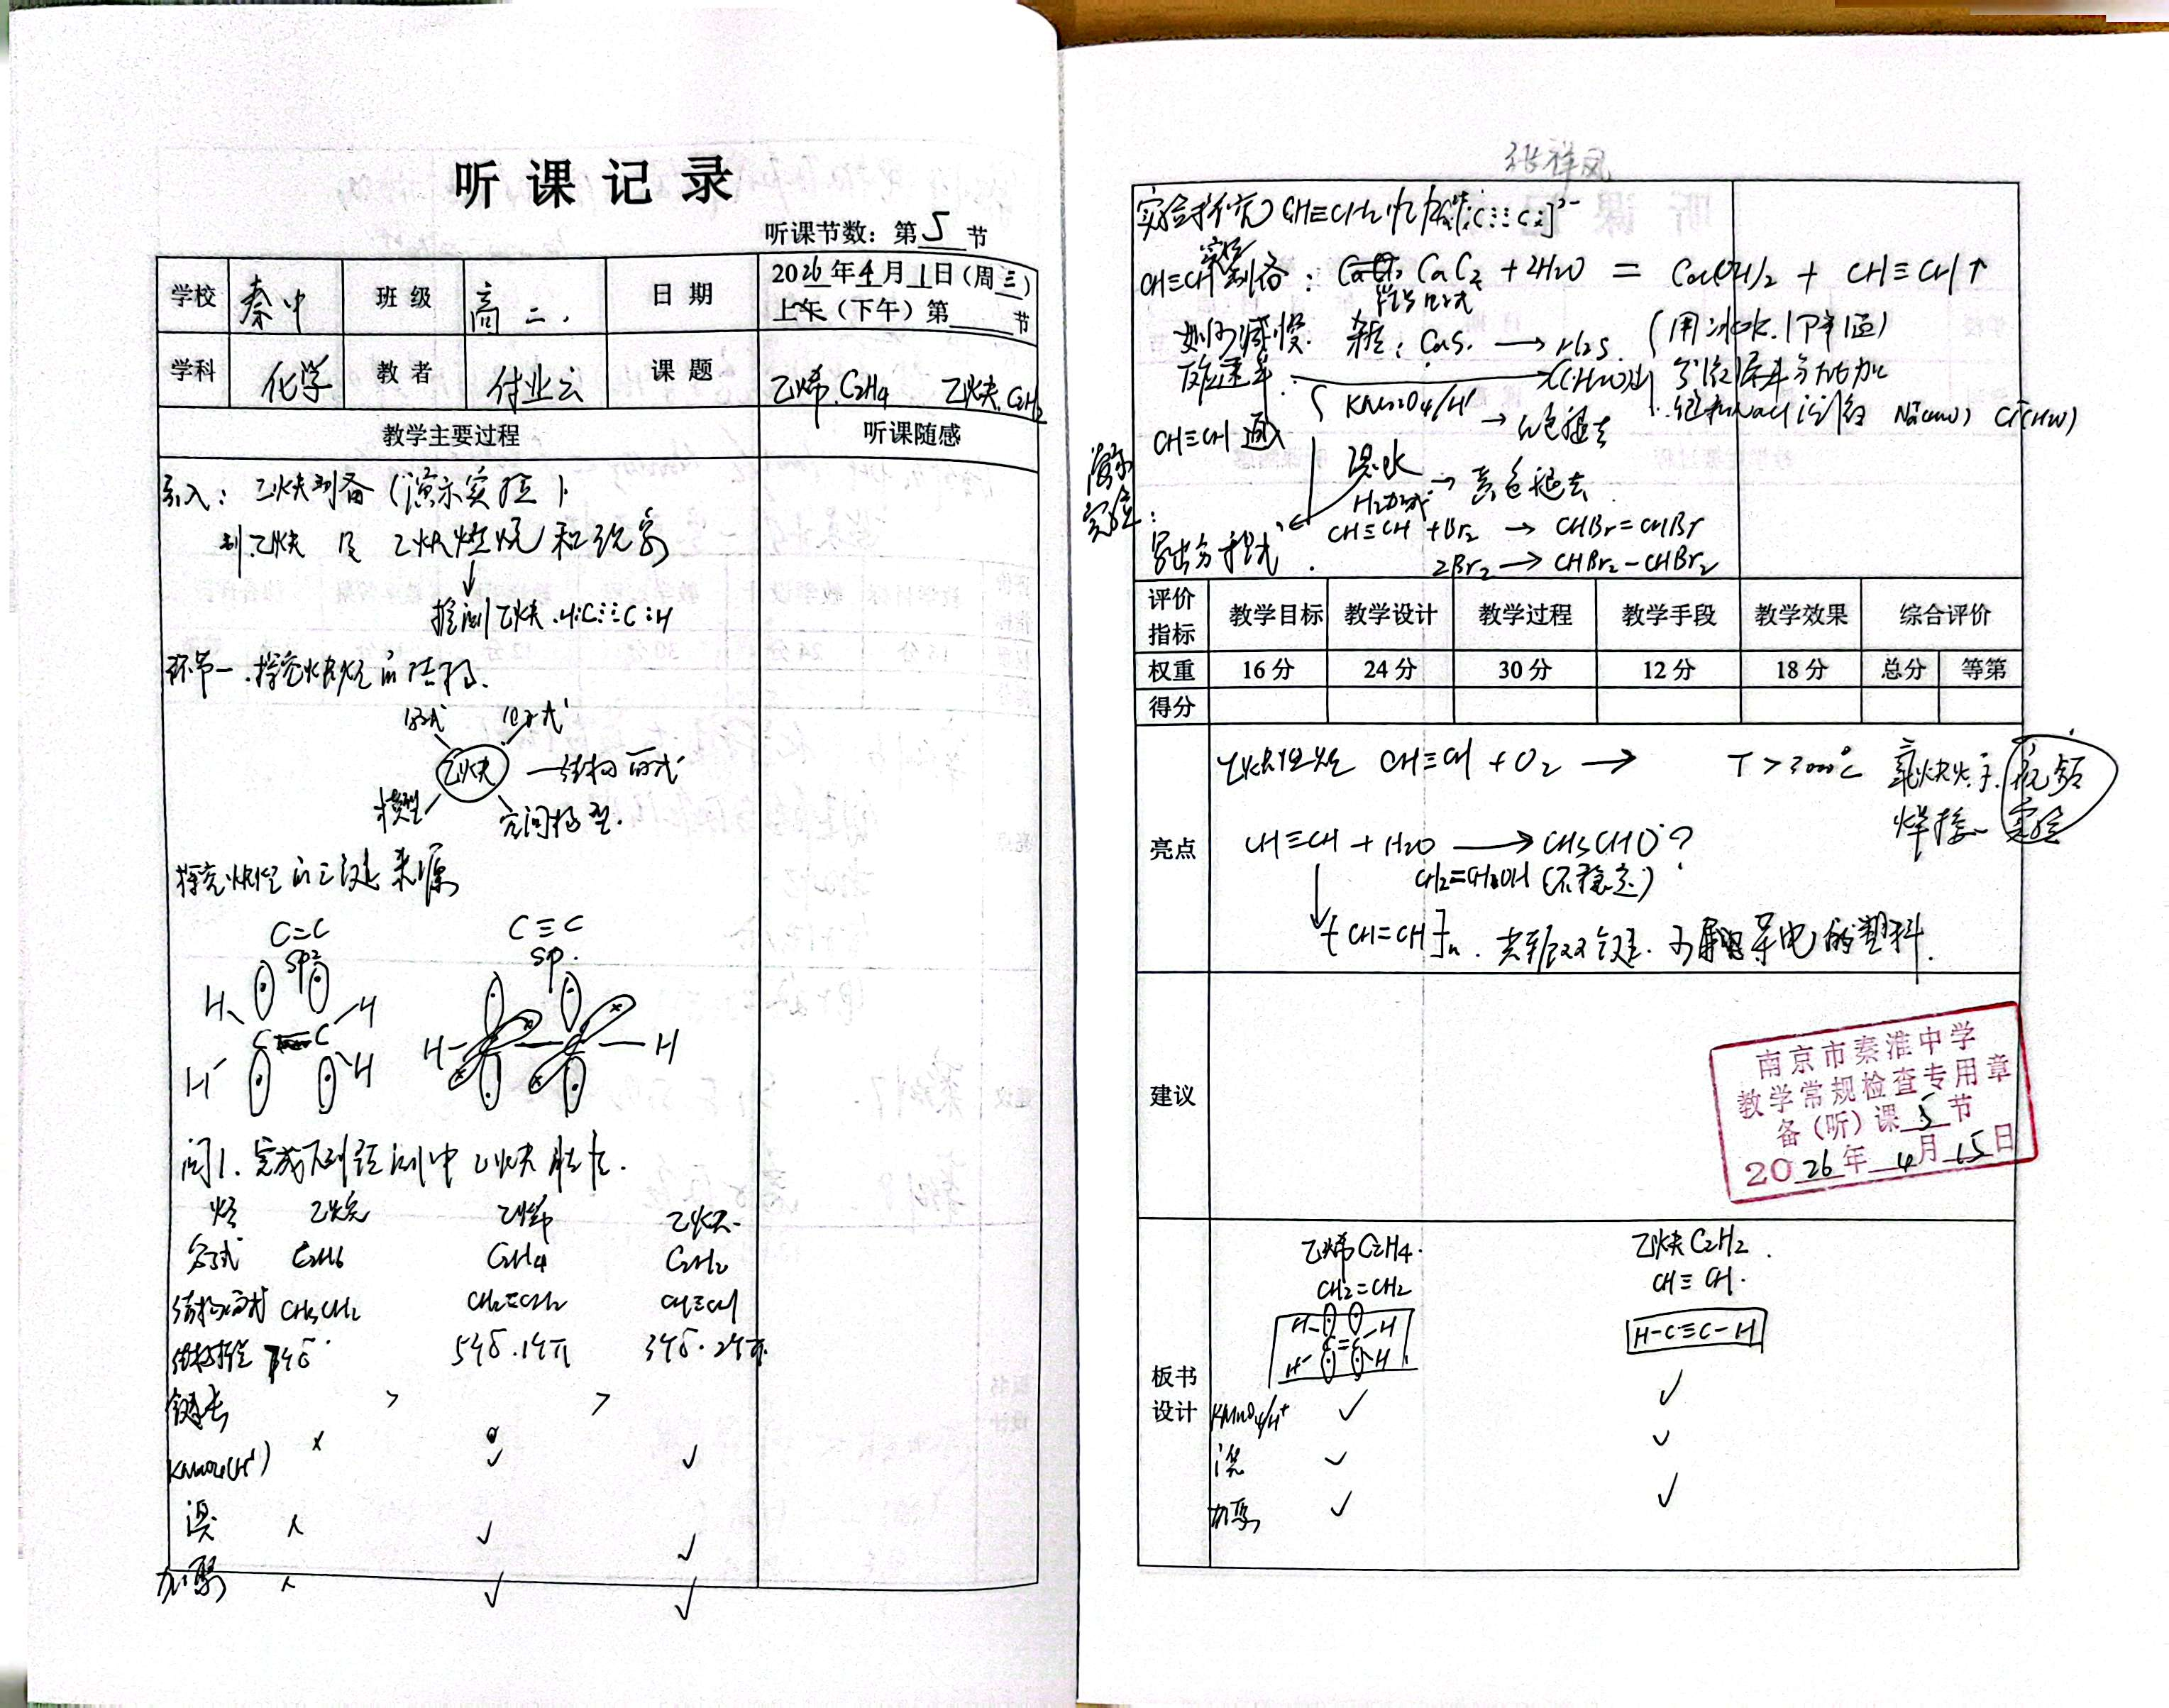 听课记录
听课节数：第 5 节
学校 秦中 班级 高二. 日期 2026年4月1日(周三)
上午（下午）第 节
学科 化学 教者 付业云 课题 乙烯.C2H4 乙炔.C2H2
教学主要过程 听课随感
引入：乙炔制备(演示实验).
制乙炔 及 乙炔燃烧和现象
↓
推测乙炔.H:C⋮⋮C:H
环节一.探究炔烃的结构.
乙炔
结构简式
模型
空间构型.
探究炔烃的三键来源
C=C C≡C
sp2 sp.
H H C C H H
H H
问1.完成下列预测中乙炔性质.
烃 乙烷 乙烯 乙炔
分子式 C2H6 C2H4 C2H2
结构简式 CH3CH2 CH2=CH2 CH≡CH
7个δ 5个δ.1个π 3个δ.2个π.
键长 > >
KMnO4(H+) × ✓ ✓
溴 × ✓ ✓
加聚 × ✓ ✓
张祥凤
实验探究
CH≡CH 实验制备： CaC2 + 2H2O = Ca(OH)2 + CH≡CH↑
如何减慢 杂质：CaS. → H2S. (用冰水.
反应速率.
KMnO4/H+ → 红色褪去
CH≡CH 通入
演示实验：
溴水 → 黄色褪去.
CH≡CH +Br2 → CHBr=CHBr
写出方程式.
2Br2 → CHBr2-CHBr2
评价指标 教学目标 教学设计 教学过程 教学手段 教学效果 综合评价
权重 16分 24分 30分 12分 18分 总分 等第
得分
亮点
乙炔燃烧 CH≡CH + O2 → T > 3000℃ 氧炔焰 视频
焊接 实验
CH≡CH + H2O → CH3CHO?
CH2=CHOH (不稳定)
↓
[CH=CH]n. 共轭双键. 可 导电的塑料.
建议
南京市秦淮中学
教学常规检查专用章
备（听）课 5 节
2026年4月15日
板书设计
乙烯C2H4. 乙炔C2H2.
CH2=CH2 CH≡CH.
H C=C H H H H-C≡C-H
KMnO4/H+ ✓ ✓
溴 ✓ ✓
加聚 ✓ ✓